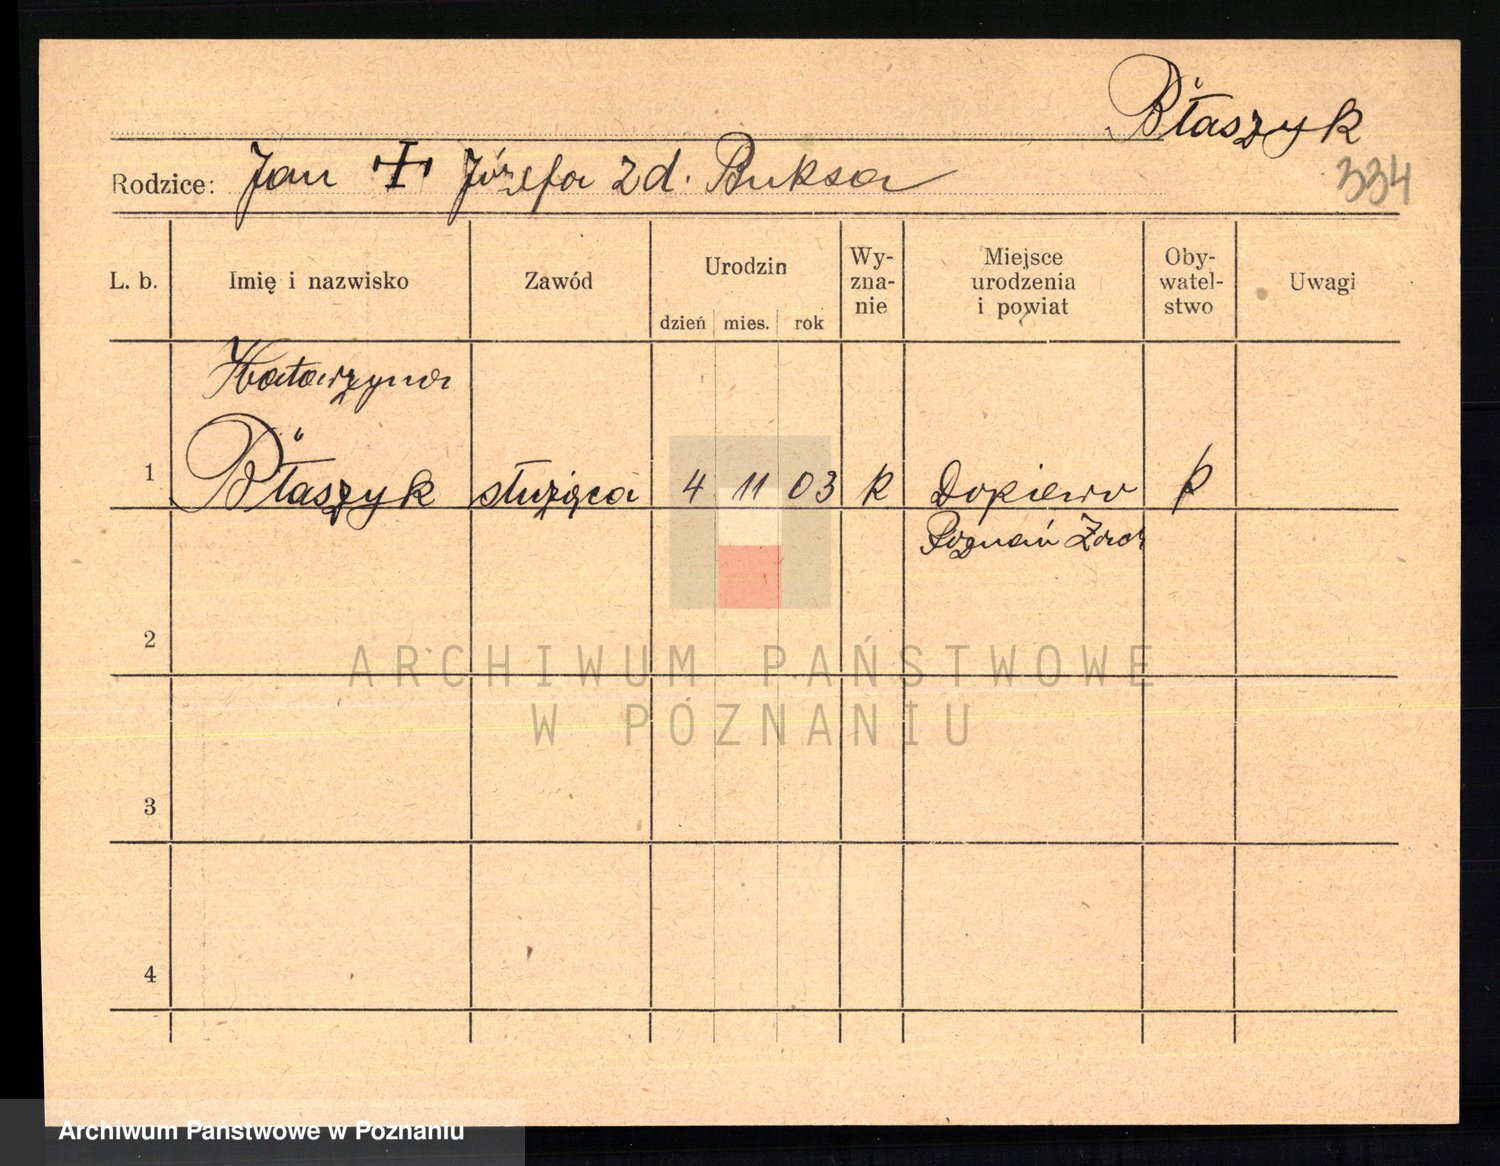 Błaszyk
Rodzice: Jan Józefa zd. Buksa
334
L. b. Imię i nazwisko Zawód Urodzin dzień mies. rok Wy-zna-nie Miejsce urodzenia i powiat Oby-watel-stwo Uwagi
Katarzyna
1 Błaszyk służąca 4 11 03 k Dopiewo p
Poznań Zach
2
ARCHIWUM PAŃSTWOWE
W POZNANIU
3
4
Archiwum Państwowe w Poznaniu